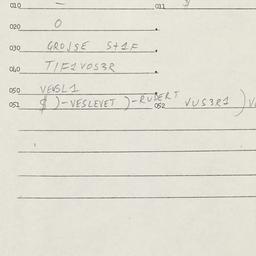 010 — 011 $
020 O
030 GROJSE S+1F
040 TIF1VOS3R
050 VEJSL1
051 $ )-VESLEVET )-RUDERT 052 VUS3R1 )V